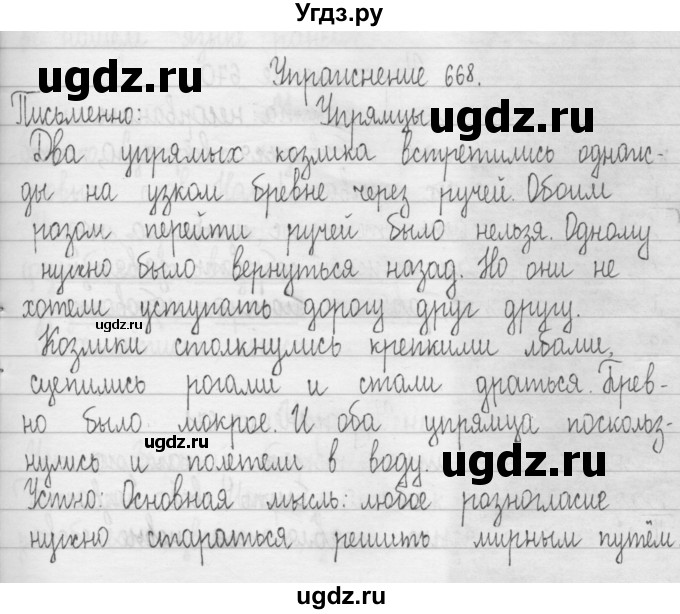 Угдз.ру
ugdz.ru
ugdz.ru
Упражнение 668.
Письменно: Упрямцы
Два упрямых козлика встретились однаж-
ugdz.ru
ды на узком бревне через ручей. Обоим
разом перейти ручей было нельзя. Одному
нужно было вернуться назад. Но они не
хотели уступать дорогу друг другу.
ugdz.ru
Козлики столкнулись крепкими лбами,
сцепились рогами и стали драться. Брев-
но было мокрое. И оба упрямца поскольз-
ugdz.ru
нулись и полетели в воду.
ugdz.ru
Устно: Основная мысль: любое разногласие
нужно стараться решить мирным путём
ugdz.ru